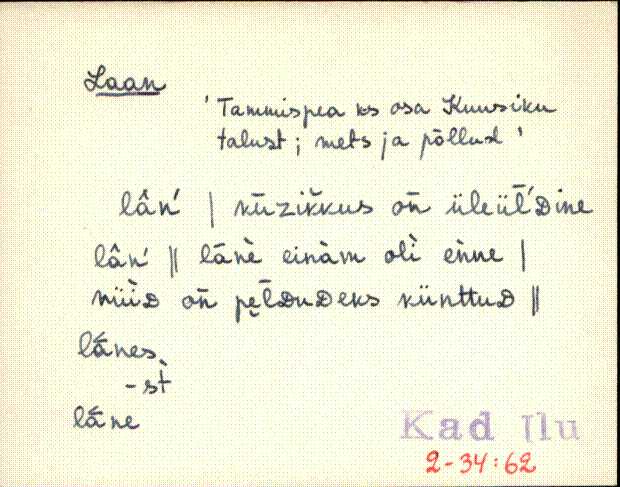 Laan
'Tammispea ks osa Kuusiku
talust; mets ja põllud'
lân' | kūzik̆kus on̄ üleül̄'Dine
lân' || lānè einàm olì eǹne |
nüìD on̄ pe̮l̄DuDeks künttuD ||
lánes
-st̀
láne
Kad Ilu
2-34:62